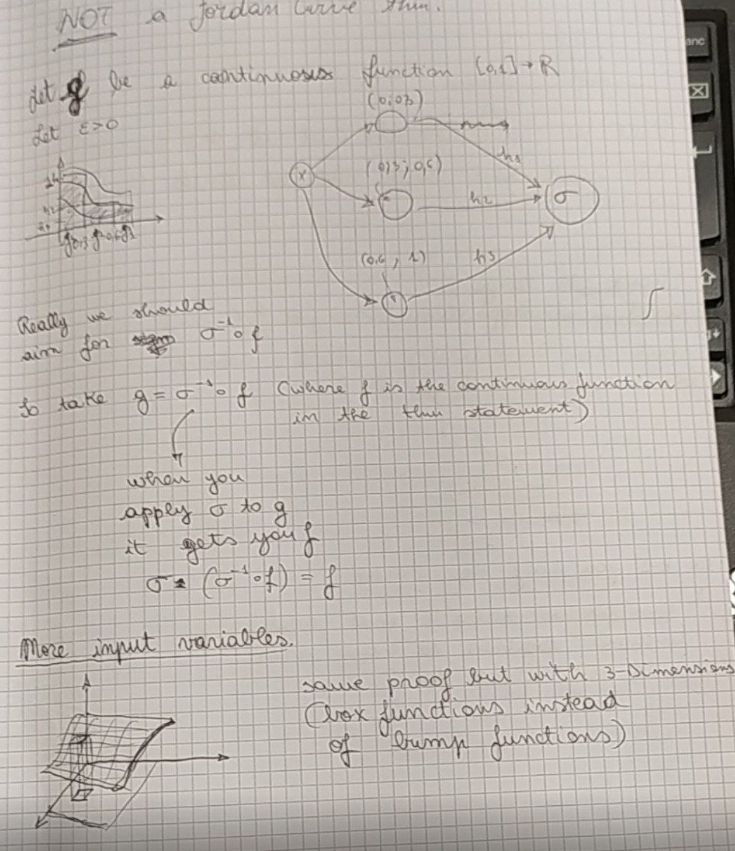 NOT a Jordan curve thm.
Let g be a continuous function [0,1] → R
Let ε>0
(0;0,3)
h1
(0,3; 0,6)
x
h2
σ
(0,6, 1)
h3
Really we should
aim for σ⁻¹∘f
So take g = σ⁻¹∘f (where f is the continuous function
in the thm statement)
when you
apply σ to g
it gets you f
σ∘(σ⁻¹∘f) = f
More input variables.
same proof but with 3-Dimensions
(box functions instead
of bump functions)